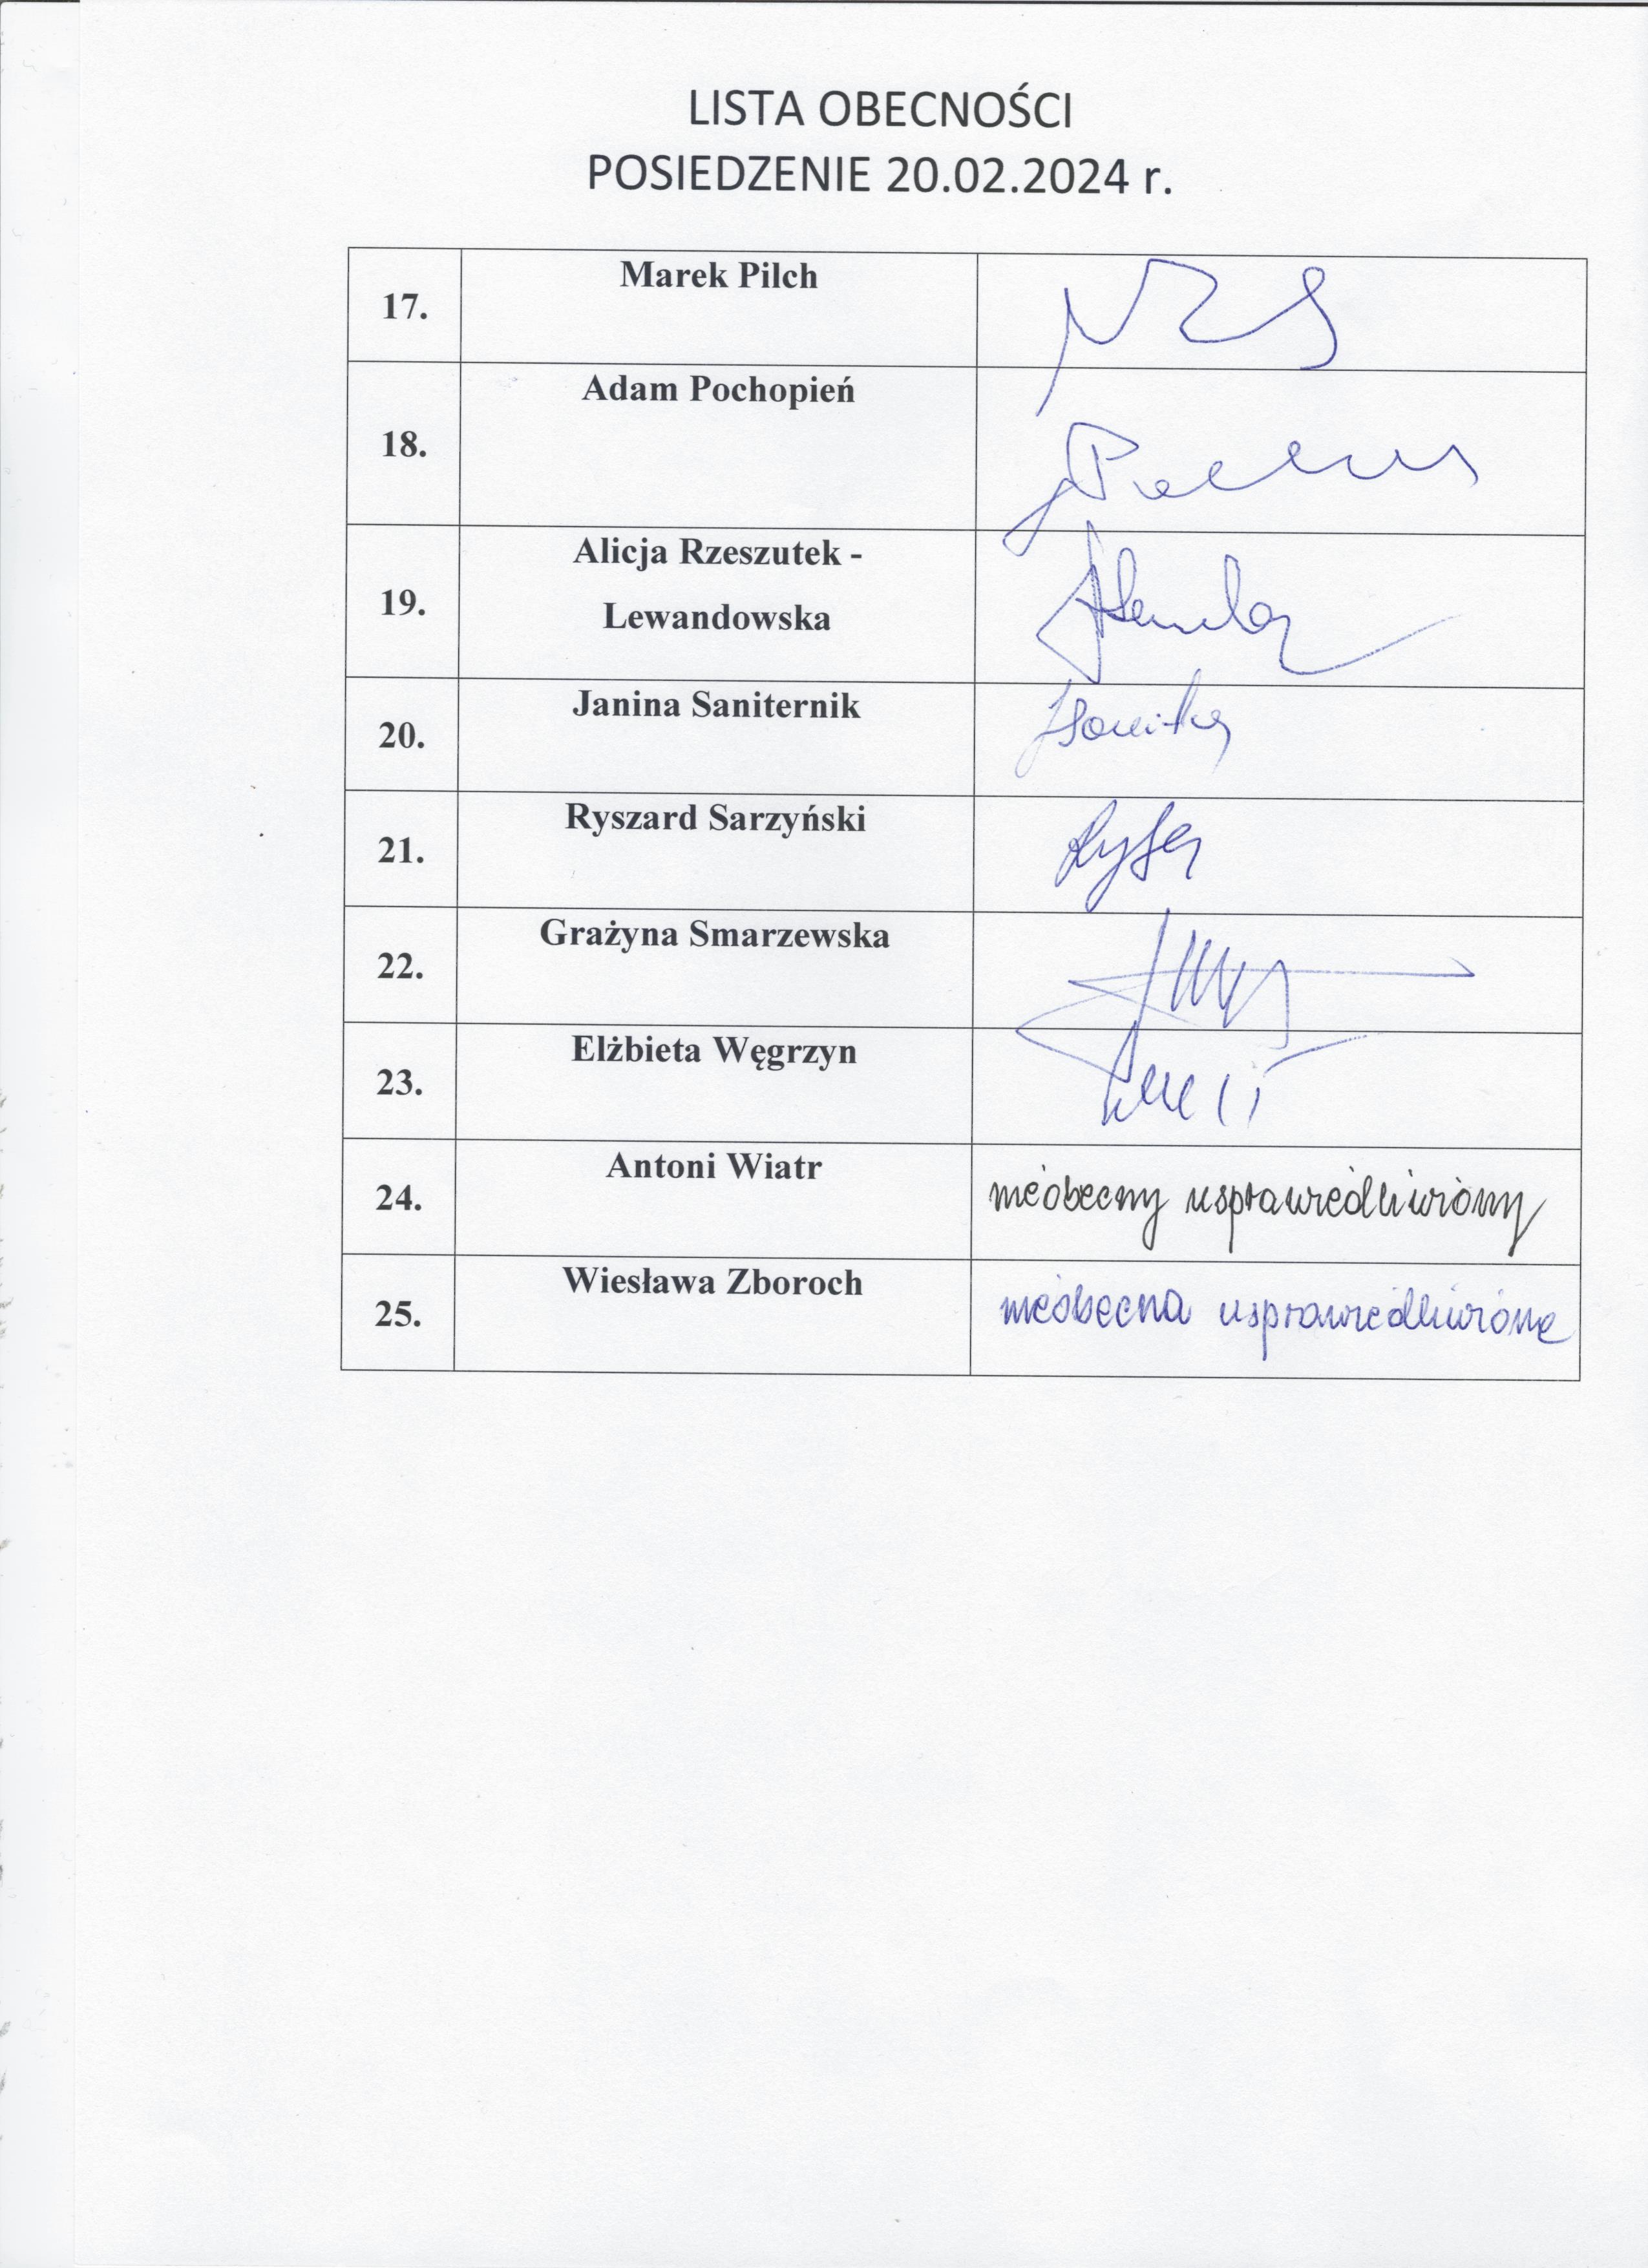 LISTA OBECNOŚCI
POSIEDZENIE 20.02.2024 r.
17. Marek Pilch
18. Adam Pochopień
19. Alicja Rzeszutek -
Lewandowska
20. Janina Saniternik
21. Ryszard Sarzyński
22. Grażyna Smarzewska
23. Elżbieta Węgrzyn
24. Antoni Wiatr nieobecny usprawiedliwiony
25. Wiesława Zboroch nieobecna usprawiedliwiona